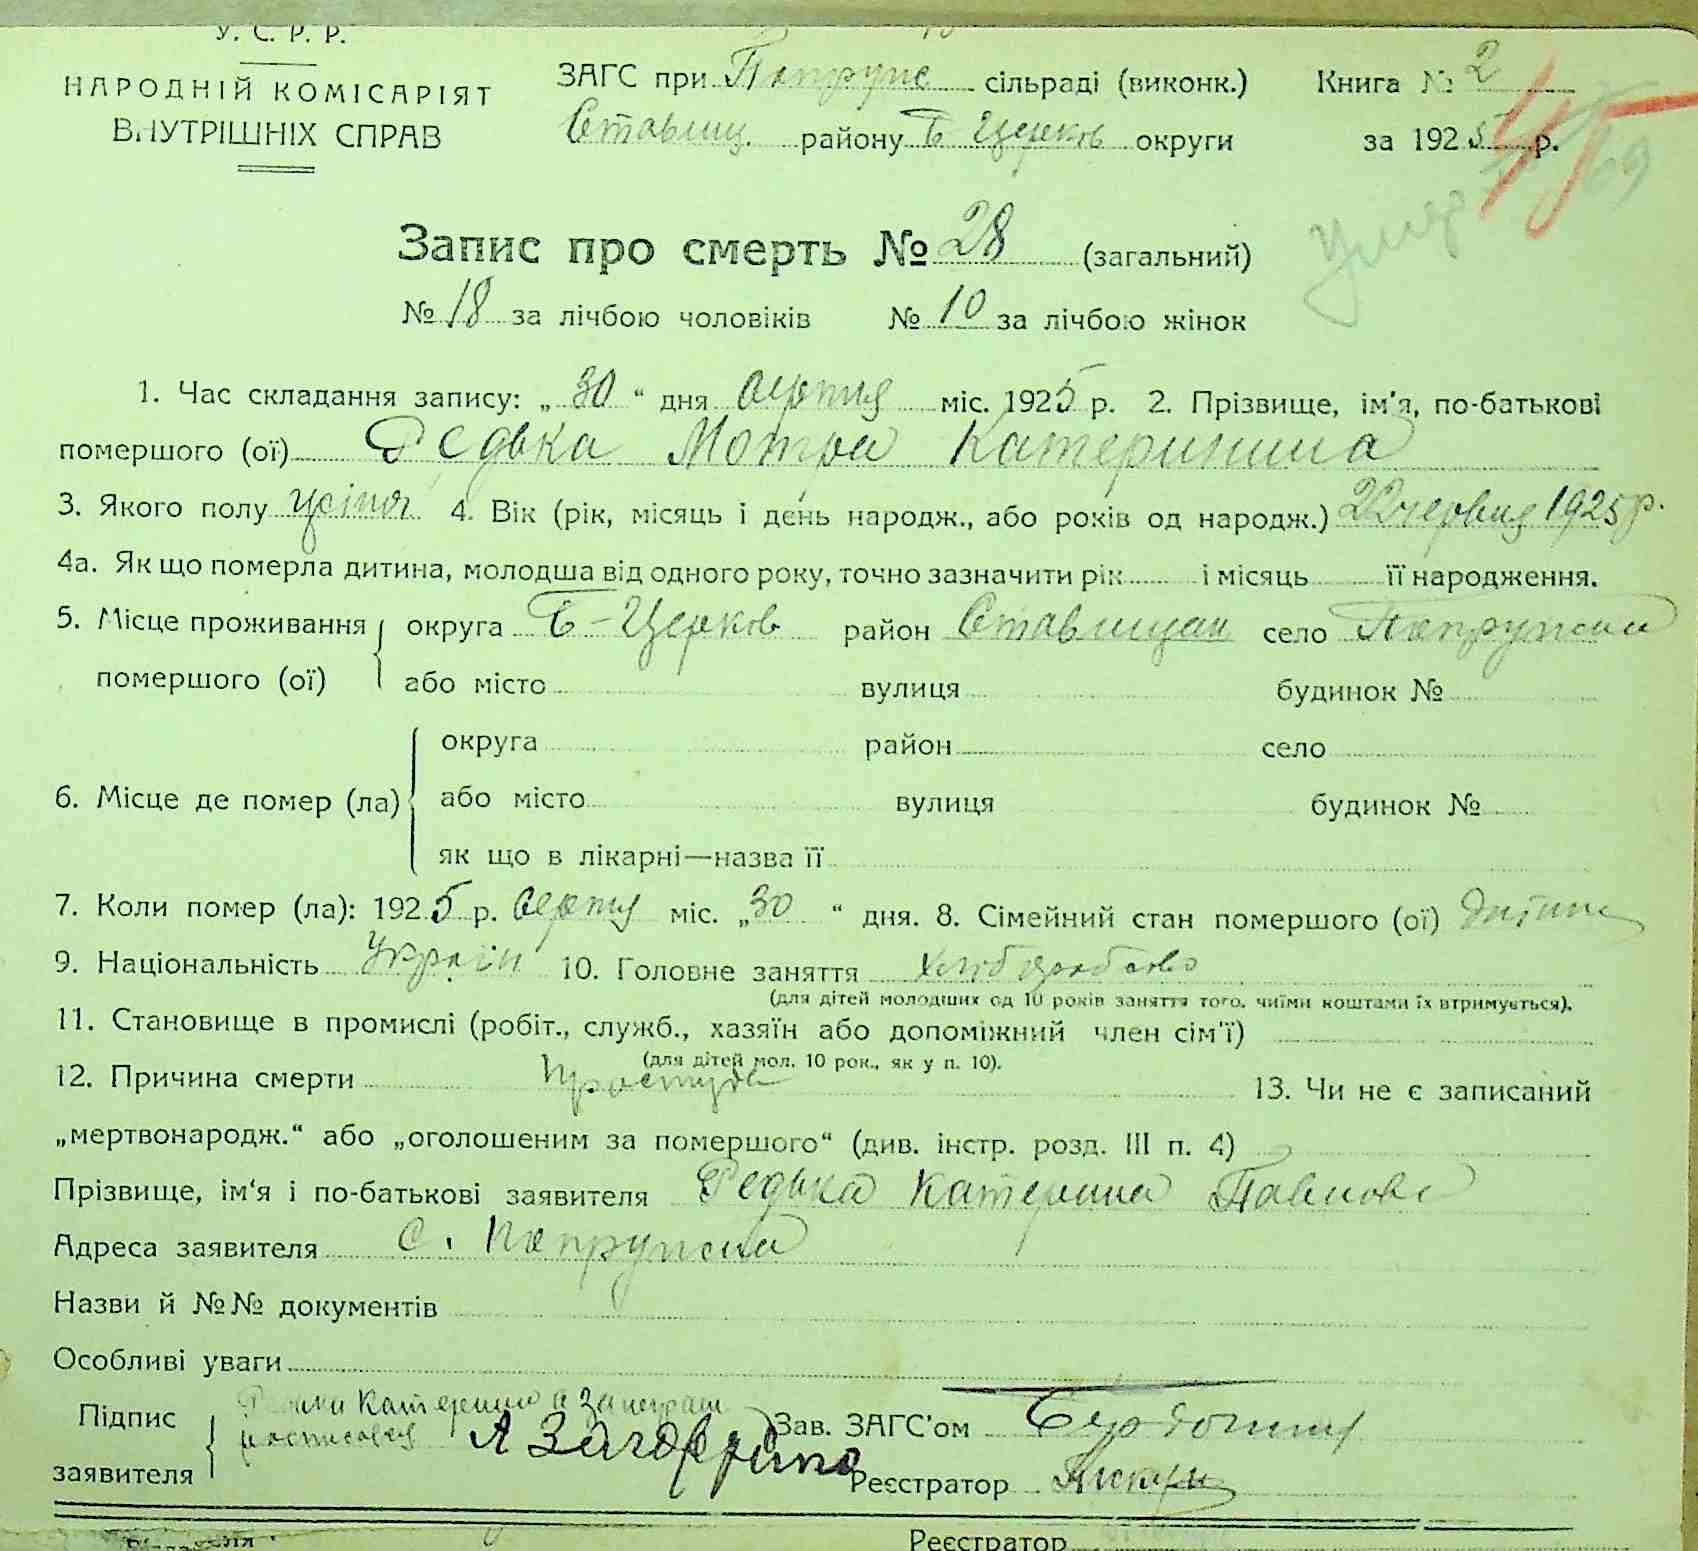 У. С. Р. Р.
НАРОДНІЙ КОМІСАРІЯТ
ВНУТРІШНІХ СПРАВ
ЗАГС при Попруж сільраді (виконк.) Книга № 2
Ставищ. району Б Церков округи за 1925 р.
45
Умер
Запис про смерть № 28 (загальний)
№ 18 за лічбою чоловіків № 10 за лічбою жінок
1. Час складання запису: „30“ дня серпня міс. 1925 р. 2. Прізвище, ім'я, по-батькові
помершого (ої) Редька Мотря Катеринина
3. Якого полу жіноч 4. Вік (рік, місяць і день народж., або років од народж.) 22 червня 1925 р.
4а. Як що померла дитина, молодша від одного року, точно зазначити рік і місяць її народження.
5. Місце проживання помершого (ої) округа Б-Церков район Ставищан село Попружна
або місто вулиця будинок №
6. Місце де помер (ла) округа район село
або місто вулиця будинок №
як що в лікарні—назва її
7. Коли помер (ла): 1925 р. серпня міс. „30“ дня. 8. Сімейний стан помершого (ої) дитина
9. Національність Україн 10. Головне заняття хліборобство
(для дітей молодших од 10 років заняття того, чиїми коштами їх втримується).
11. Становище в промислі (робіт., служб., хазяїн або допоміжний член сім'ї)
(для дітей мол. 10 рок., як у п. 10).
12. Причина смерти простуда 13. Чи не є записаний
„мертвонародж.“ або „оголошеним за помершого“ (див. інстр. розд. III п. 4)
Прізвище, ім'я і по-батькові заявителя Редька Катерина Павлова
Адреса заявителя с. Попружна
Назви й №№ документів
Особливі уваги
Підпис заявителя Редька Катерина а за неграм
росписався Я
Зав. ЗАГС'ом
Реєстратор
Реєстратор